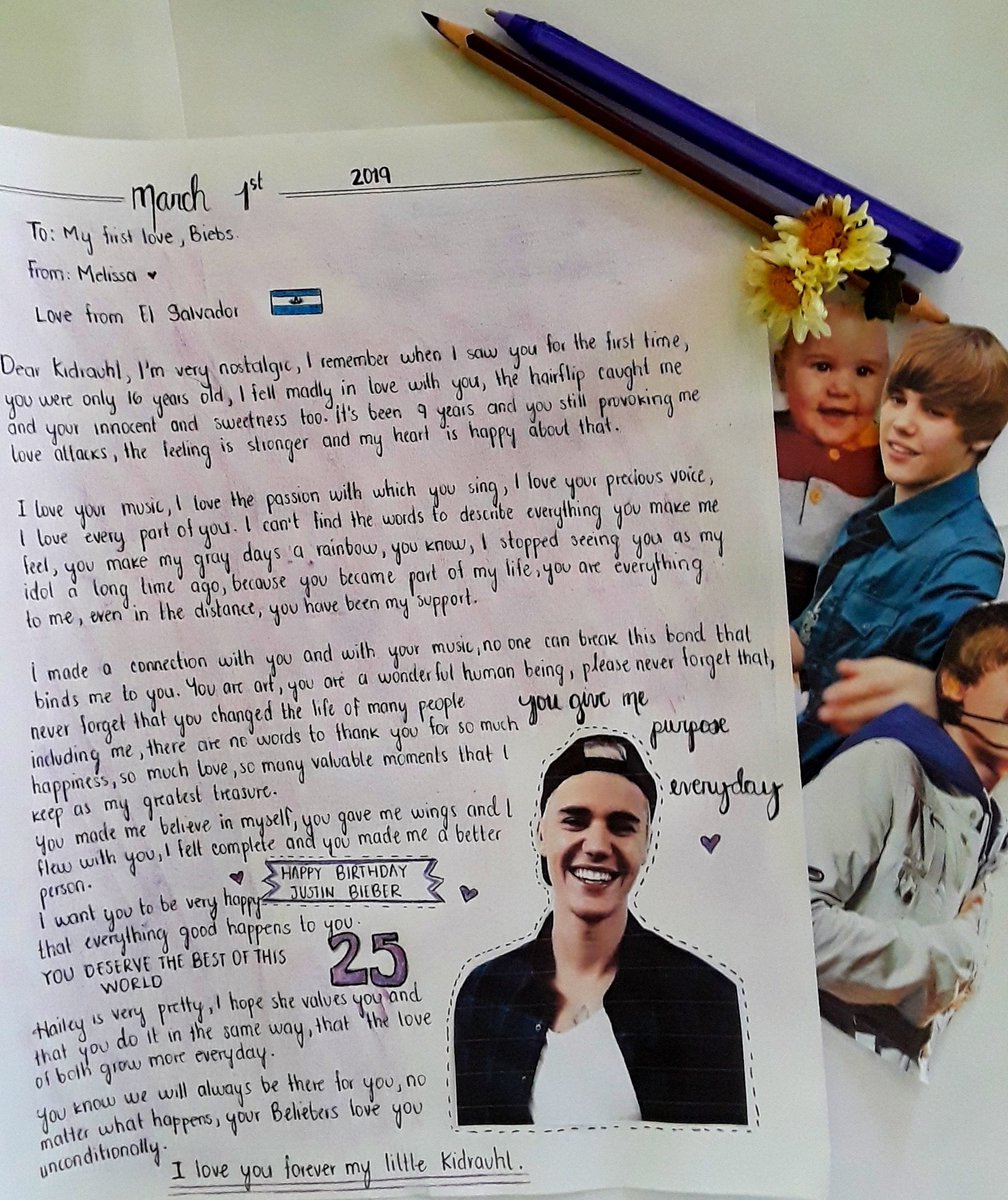 March 1st 2019
To: My first love, Biebs.
From: Melissa ♥
Love from El Salvador
Dear Kidrauhl, I'm very nostalgic, I remember when I saw you for the first time,
you were only 16 years old, I fell madly in love with you, the hairflip caught me
and your innocent and sweetness too. it's been 9 years and you still provoking me
love attacks, the feeling is stronger and my heart is happy about that.
I love your music, I love the passion with which you sing, I love your precious voice,
I love every part of you. I can't find the words to describe everything you make me
feel, you make my gray days a rainbow, you know, I stopped seeing you as my
idol a long time ago, because you became part of my life, you are everything
to me, even in the distance, you have been my support.
I made a connection with you and with your music, no one can break this bond that
binds me to you. You are art, you are a wonderful human being, please never forget that,
never forget that you changed the life of many people
including me, there are no words to thank you for so much
happiness, so much love, so many valuable moments that I
keep as my greatest treasure.
You made me believe in myself, you gave me wings and I
flew with you, I felt complete and you made me a better
person.
you give me
purpose
everyday
HAPPY BIRTHDAY
JUSTIN BIEBER
I want you to be very happy
that everything good happens to you.
YOU DESERVE THE BEST OF THIS
WORLD
25
Hailey is very pretty, I hope she values you and
that you do it in the same way, that the love
of both grow more everyday.
you know we will always be there for you, no
matter what happens, your Beliebers love you
unconditionally.
I love you forever my little Kidrauhl.